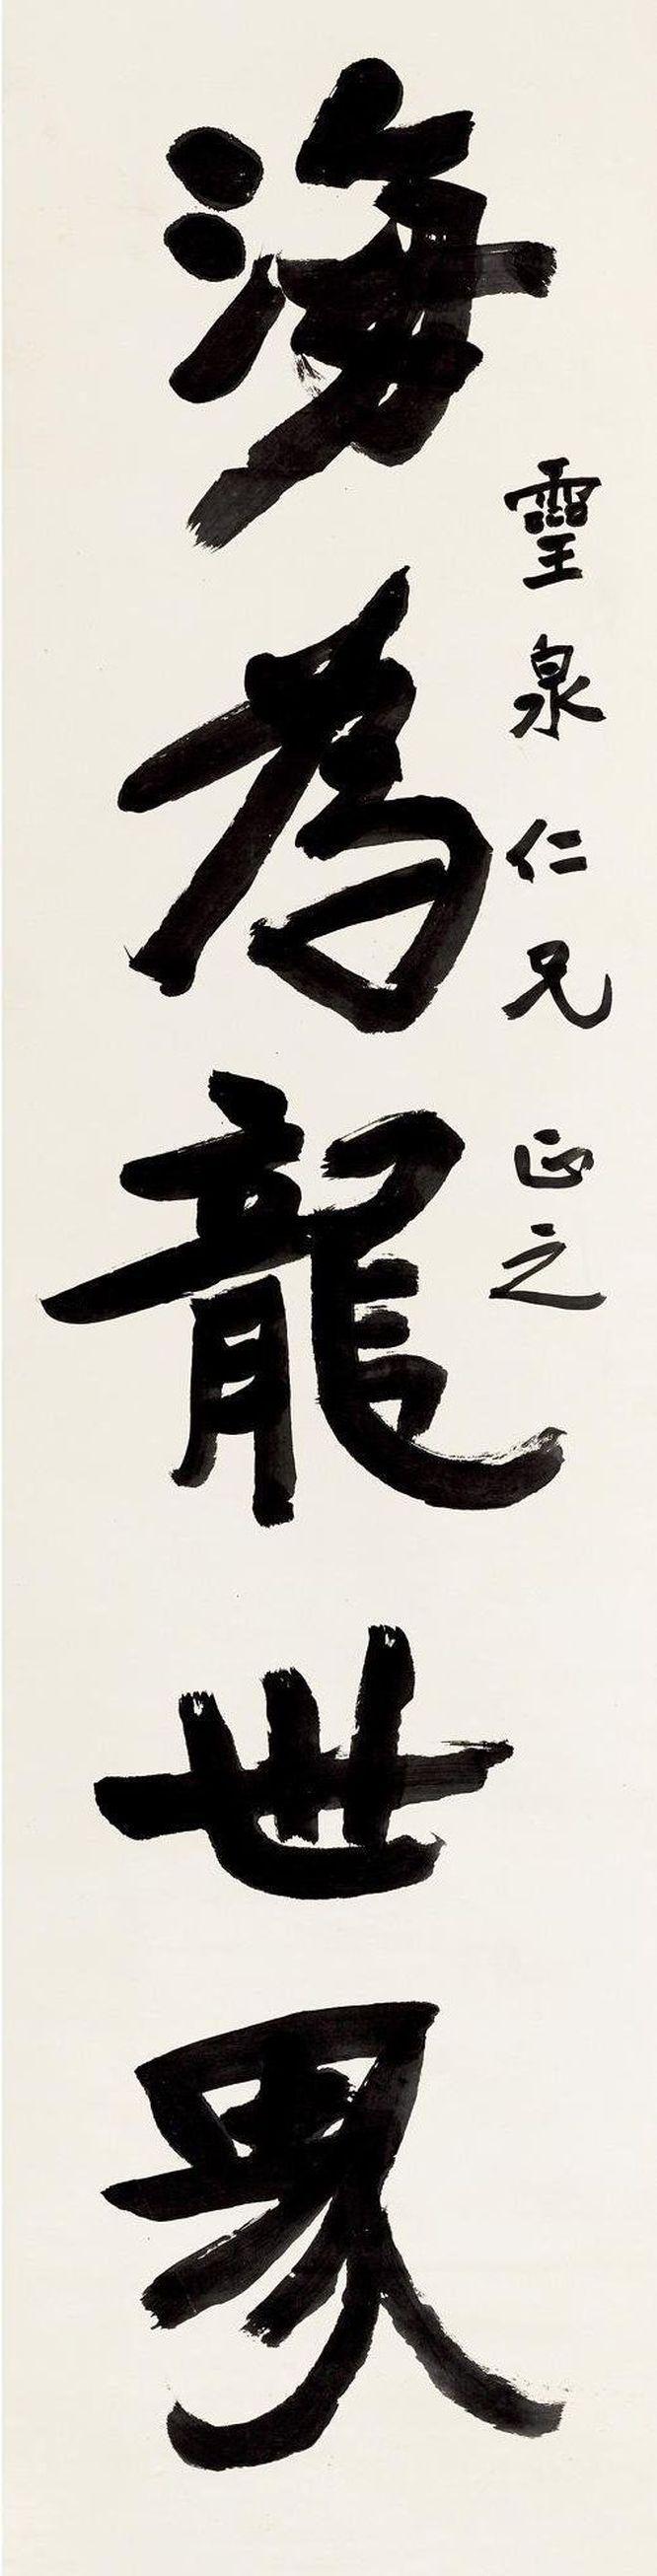 靈泉仁兄正之
海為龍世界